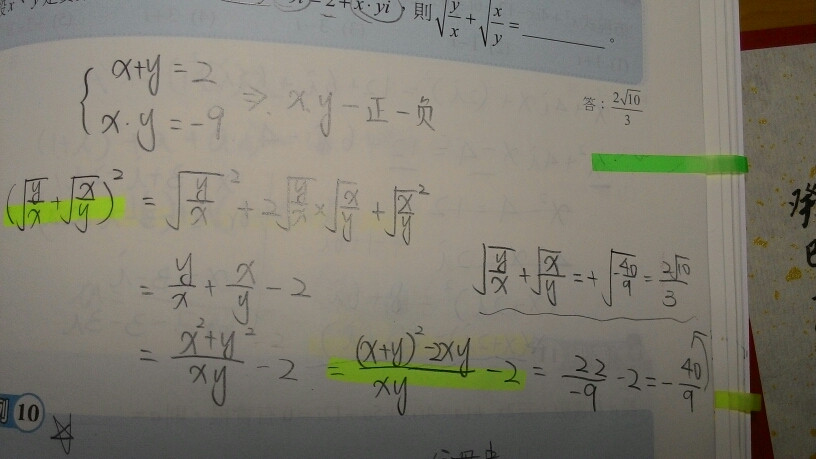 =2+x·yi，則√(y/x)+√(x/y)=________。
{ x+y=2
x·y=-9 ⇒ x.y 一正一负
答：2√10/3
(√(y/x)+√(x/y))² = √(y/x)²+2√(y/x)×√(x/y)+√(x/y)²
= y/x + x/y - 2
√(y/x)+√(x/y)=+√(-40/9)=2√10/3
= (x²+y²)/xy - 2 = ((x+y)²-2xy)/xy - 2 = 22/-9 - 2 = -40/9
10